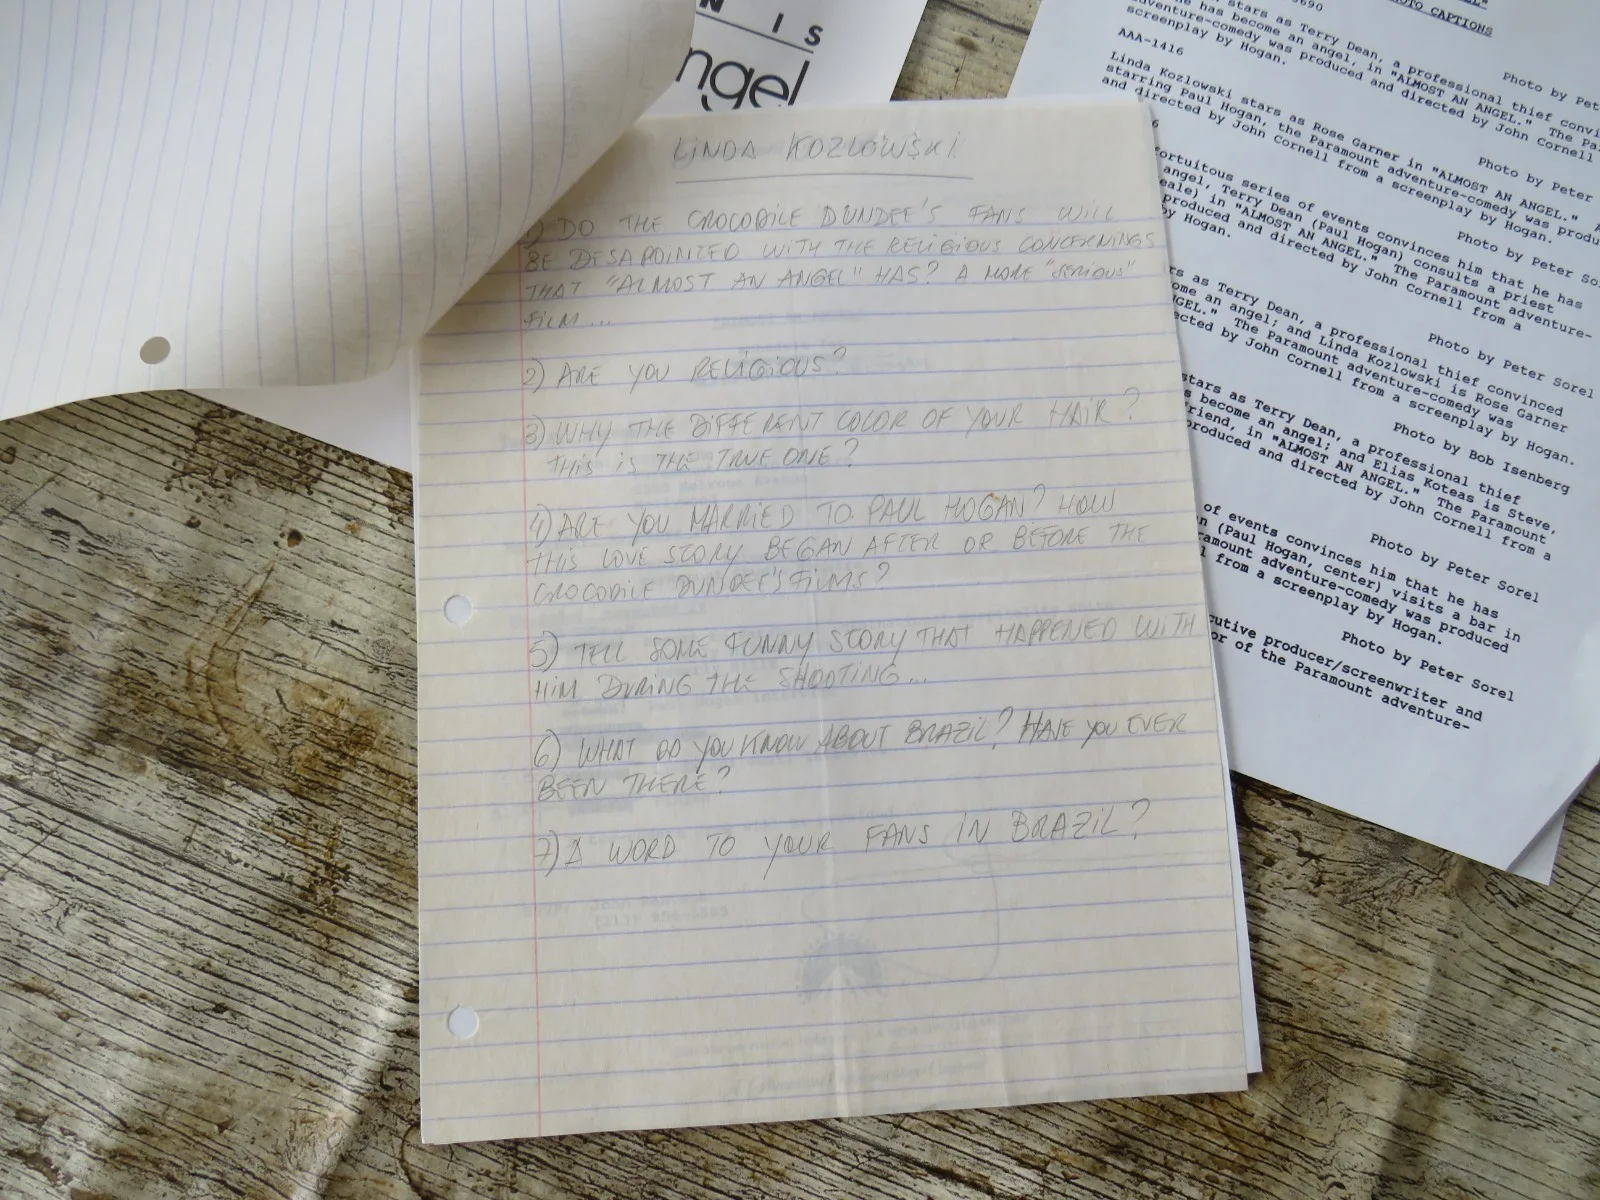 N I S
ngel
LINDA KOZLOWSKI
1) DO THE CROCODILE DUNDEE'S FANS WILL
BE DESAPOINTED WITH THE RELIGIOUS CONCERNINGS
THAT "ALMOST AN ANGEL" HAS? A MORE "SERIOUS"
FILM...
2) ARE YOU RELIGIOUS?
3) WHY THE DIFFERENT COLOR OF YOUR HAIR?
THIS IS THE TRUE ONE?
4) ARE YOU MARRIED TO PAUL HOGAN? HOW
THIS LOVE STORY BEGAN AFTER OR BEFORE THE
CROCODILE DUNDEE'S FILMS?
5) TELL SOME FUNNY STORY THAT HAPPENED WITH
HIM DURING THE SHOOTING...
6) WHAT DO YOU KNOW ABOUT BRAZIL? HAVE YOU EVER
BEEN THERE?
7) A WORD TO YOUR FANS IN BRAZIL?
PHOTO CAPTIONS
stars as Terry Dean, a professional thief convi
he has become an angel, in "ALMOST AN ANGEL." The Pa
adventure-comedy was produced and directed by John Cornell
screenplay by Hogan.
Photo by Pet
AAA-1416
Linda Kozlowski stars as Rose Garner in "ALMOST AN ANGEL."
starring Paul Hogan, the Paramount adventure-comedy was produ
and directed by John Cornell from a screenplay by Hogan.
Photo by Peter
ortuitous series of events convinces him that he has
angel, Terry Dean (Paul Hogan) consults a priest
eale) in "ALMOST AN ANGEL." The Paramount adventure-
produced and directed by John Cornell from a
by Hogan.
Photo by Peter Sor
rs as Terry Dean, a professional thief convinced
ome an angel; and Linda Kozlowski is Rose Garner
NGEL." The Paramount adventure-comedy was
ected by John Cornell from a screenplay by Hogan.
Photo by Peter Sorel
stars as Terry Dean, a professional thief
s become an angel; and Elias Koteas is Steve,
friend, in "ALMOST AN ANGEL." The Paramount
produced and directed by John Cornell from a
Photo by Bob Isenberg
of events convinces him that he has
n (Paul Hogan, center) visits a bar in
ramount adventure-comedy was produced
l from a screenplay by Hogan.
Photo by Peter Sorel
cutive producer/screenwriter and
or of the Paramount adventure-
Photo by Peter Sorel